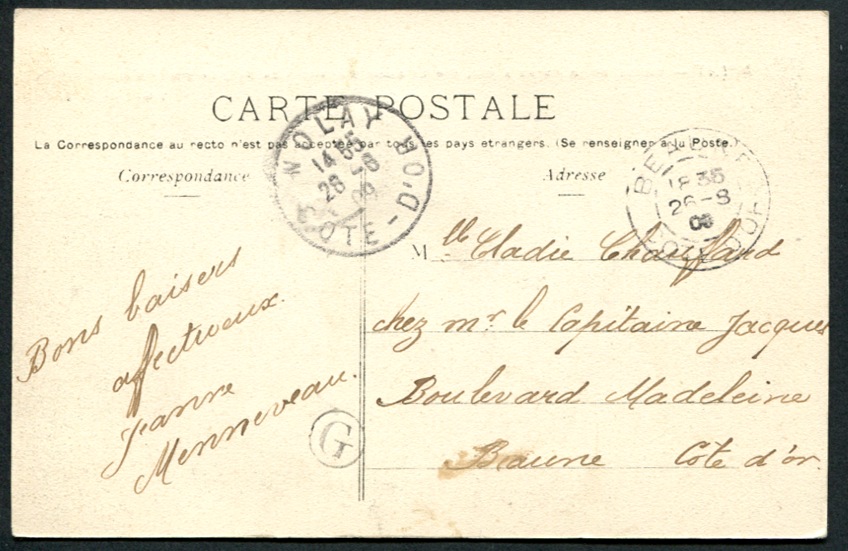 CARTE POSTALE
La Correspondance au recto n'est pas acceptée par tous les pays etrangers. (Se renseigner à la Poste.)
Correspondance
Adresse
NOLAY
14 35
28 -8
COTE-D'OR
18 35
26-8
COTE D'OR
Mlle Cladie Chauffard
chez mr le Capitaine Jacques
Boulevard Madeleine
Beaune Cote d'or.
Bons baisers
affectueux.
Jeanne
Menneveau.
G